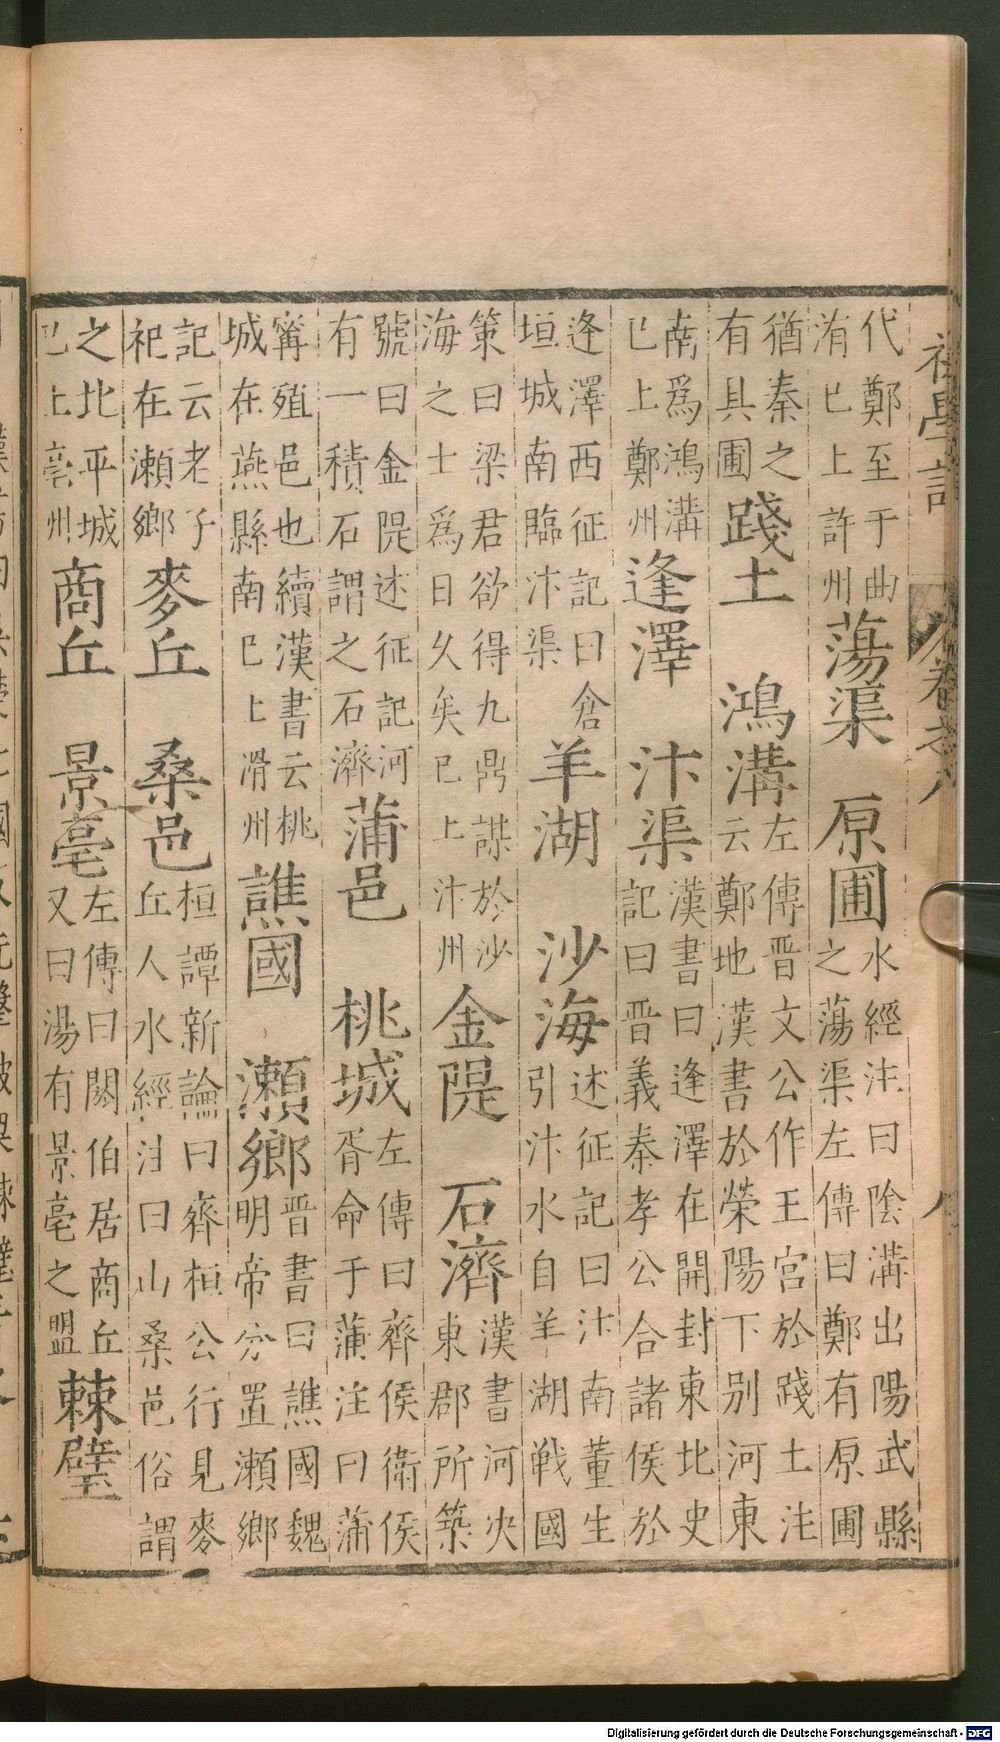 代鄭至于曲
洧已上許州
蕩渠 原圃
水經注曰陰溝出陽武縣
之蕩渠左傳曰鄭有原圃
猶秦之
有具圃
踐土 鴻溝
左傳晋文公作王宮於踐土注
云鄭地漢書於滎陽下別河東
南爲鴻溝
已上鄭州
逢澤 汴渠
漢書曰逢澤在開封東北史
記曰晋義秦孝公合諸侯於
逢澤西征記曰倉
垣城南臨汴渠
羊湖 沙海
述征記曰汴南董生
引汴水自羊湖戰國
策曰梁君欲得九鼎謀於沙
海之士爲日久矣已上汴州
金隄 石濟
漢書河决
東郡所築
號曰金隄述征記河
有一積石謂之石濟
蒲邑 桃城
左傳曰齊侯衛侯
胥命于蒲注曰蒲
甯殖邑也續漢書云桃
城在燕縣南已上滑州
譙國 瀨鄉
晋書曰譙國魏
明帝分置瀨鄉
記云老子
祀在瀨鄉
麥丘 桑邑
桓譚新論曰齊桓公行見麥
丘人水經注曰山桑邑俗謂
之北平城
已上亳州
商丘 景亳
左傳曰閼伯居商丘
又曰湯有景亳之盟
棘壁
卷之八
八
Digitalisierung gefördert durch die Deutsche Forschungsgemeinschaft - DFG